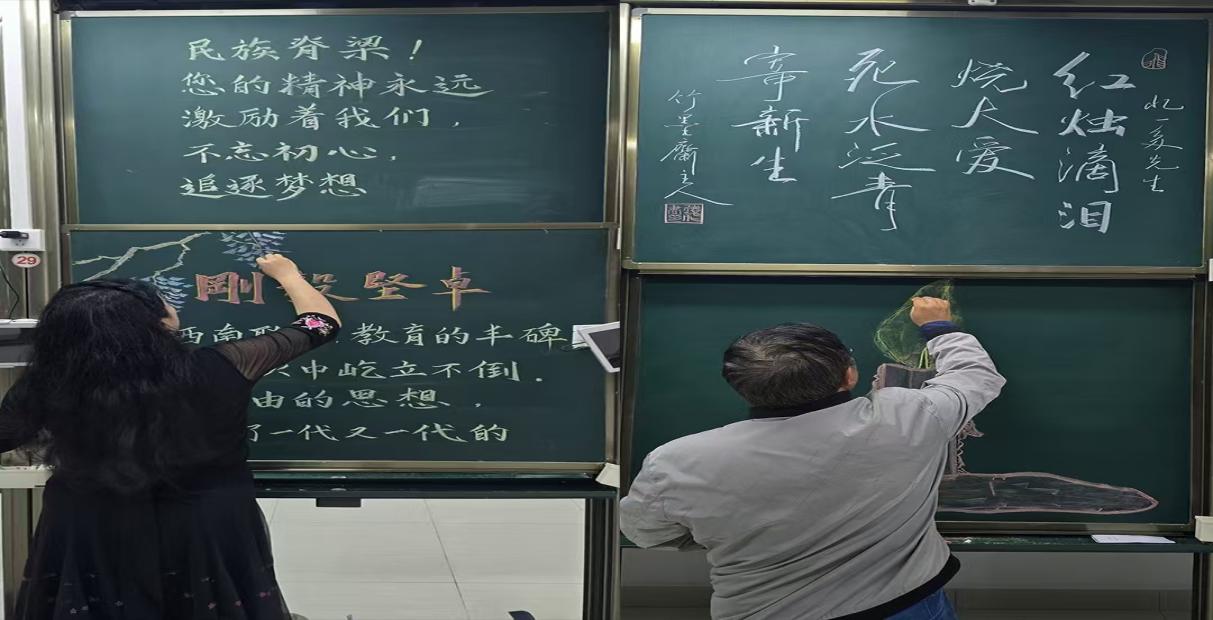 民族脊梁！
您的精神永远
激励着我们，
不忘初心，
追逐梦想
29
剛 坚卓
西南 教育的丰碑
中屹立不倒．
由的思想，
了一代又一代的
忆一多先生
红烛滴泪
烧大爱
死水泛青
新生
竹墨 主人